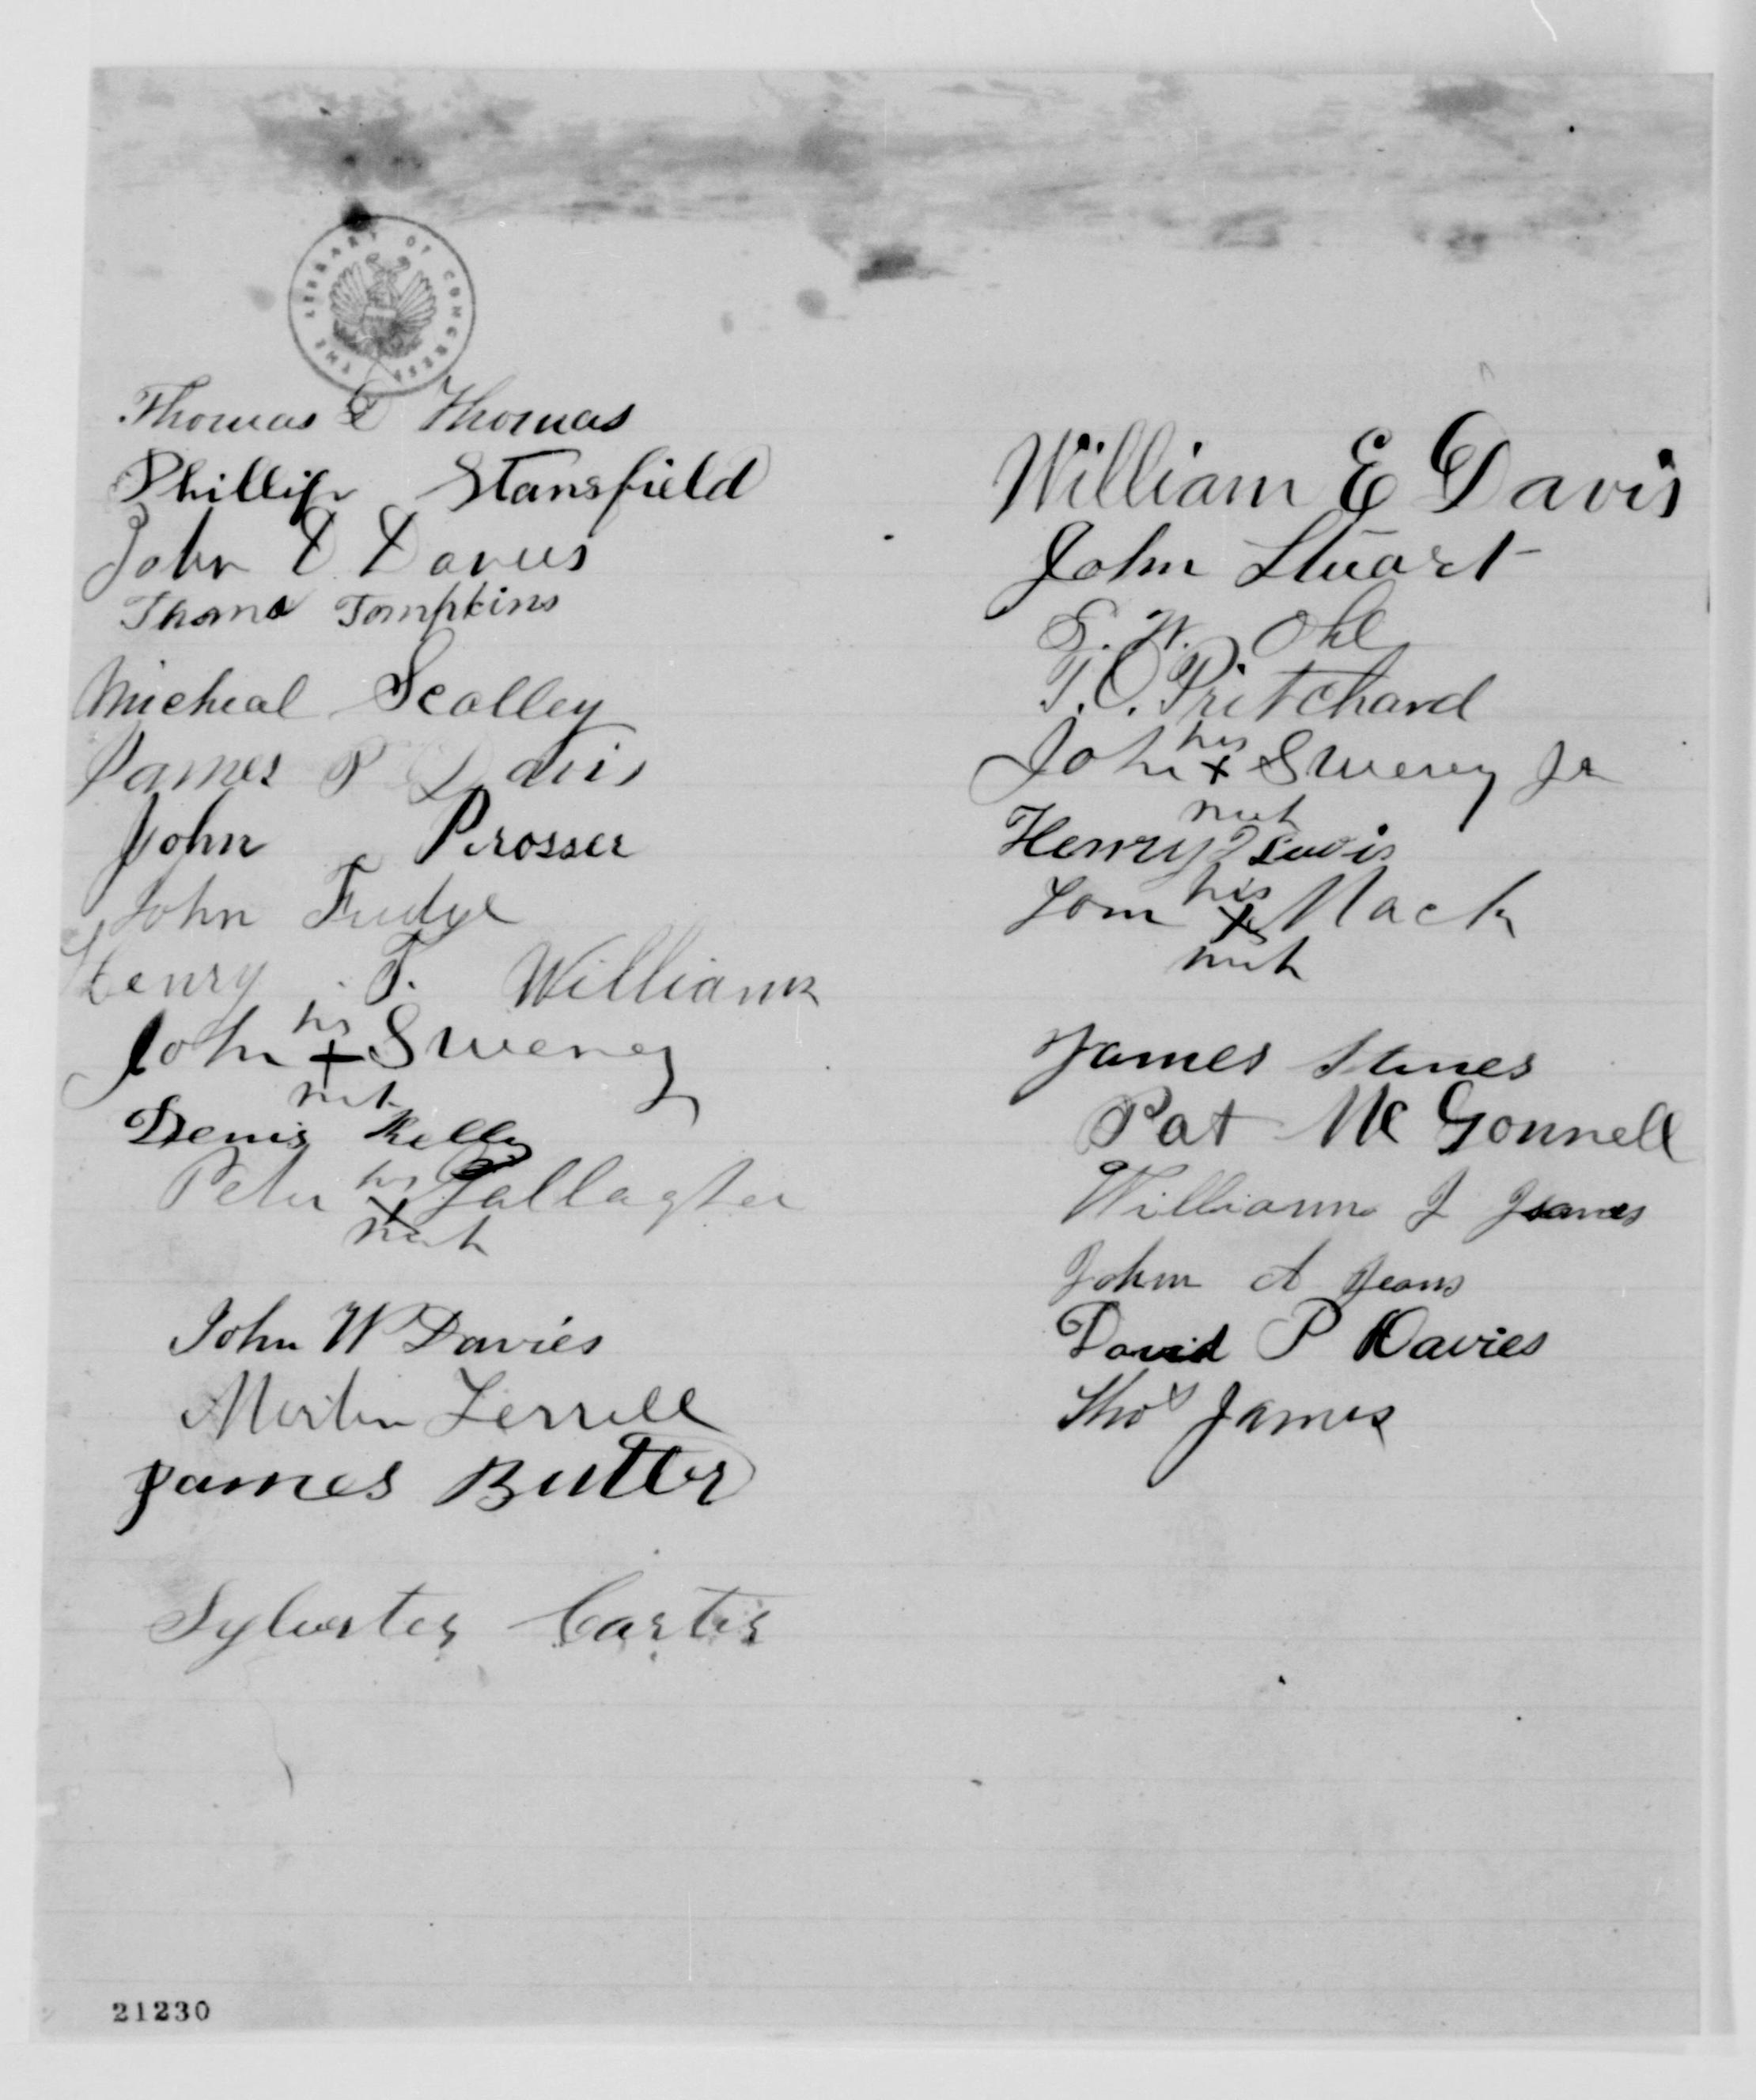 THE LIBRARY OF CONGRESS
Thomas D Thomas
Phillip Stansfield
John D Davies
Thomas Tompkins
Micheal Scalley
James P Davis
John Prosser
John Fudge
Henry T. Williams
his
John + Sweney
mark
Denis Kelly
his
Peter x Gallagher
mark
John W Davies
Martin Ferrell
James Butler
Sylvester Carter
William E Davis
John Stuart
E. W. Ohl
T. O. Pritchard
his
John + Sweney Jr
mark
Henry Lewis
his
Tom x Mack
mark
James
Pat Mc Gonnell
William J
John A Jeans
David P Davies
Thos James
21230